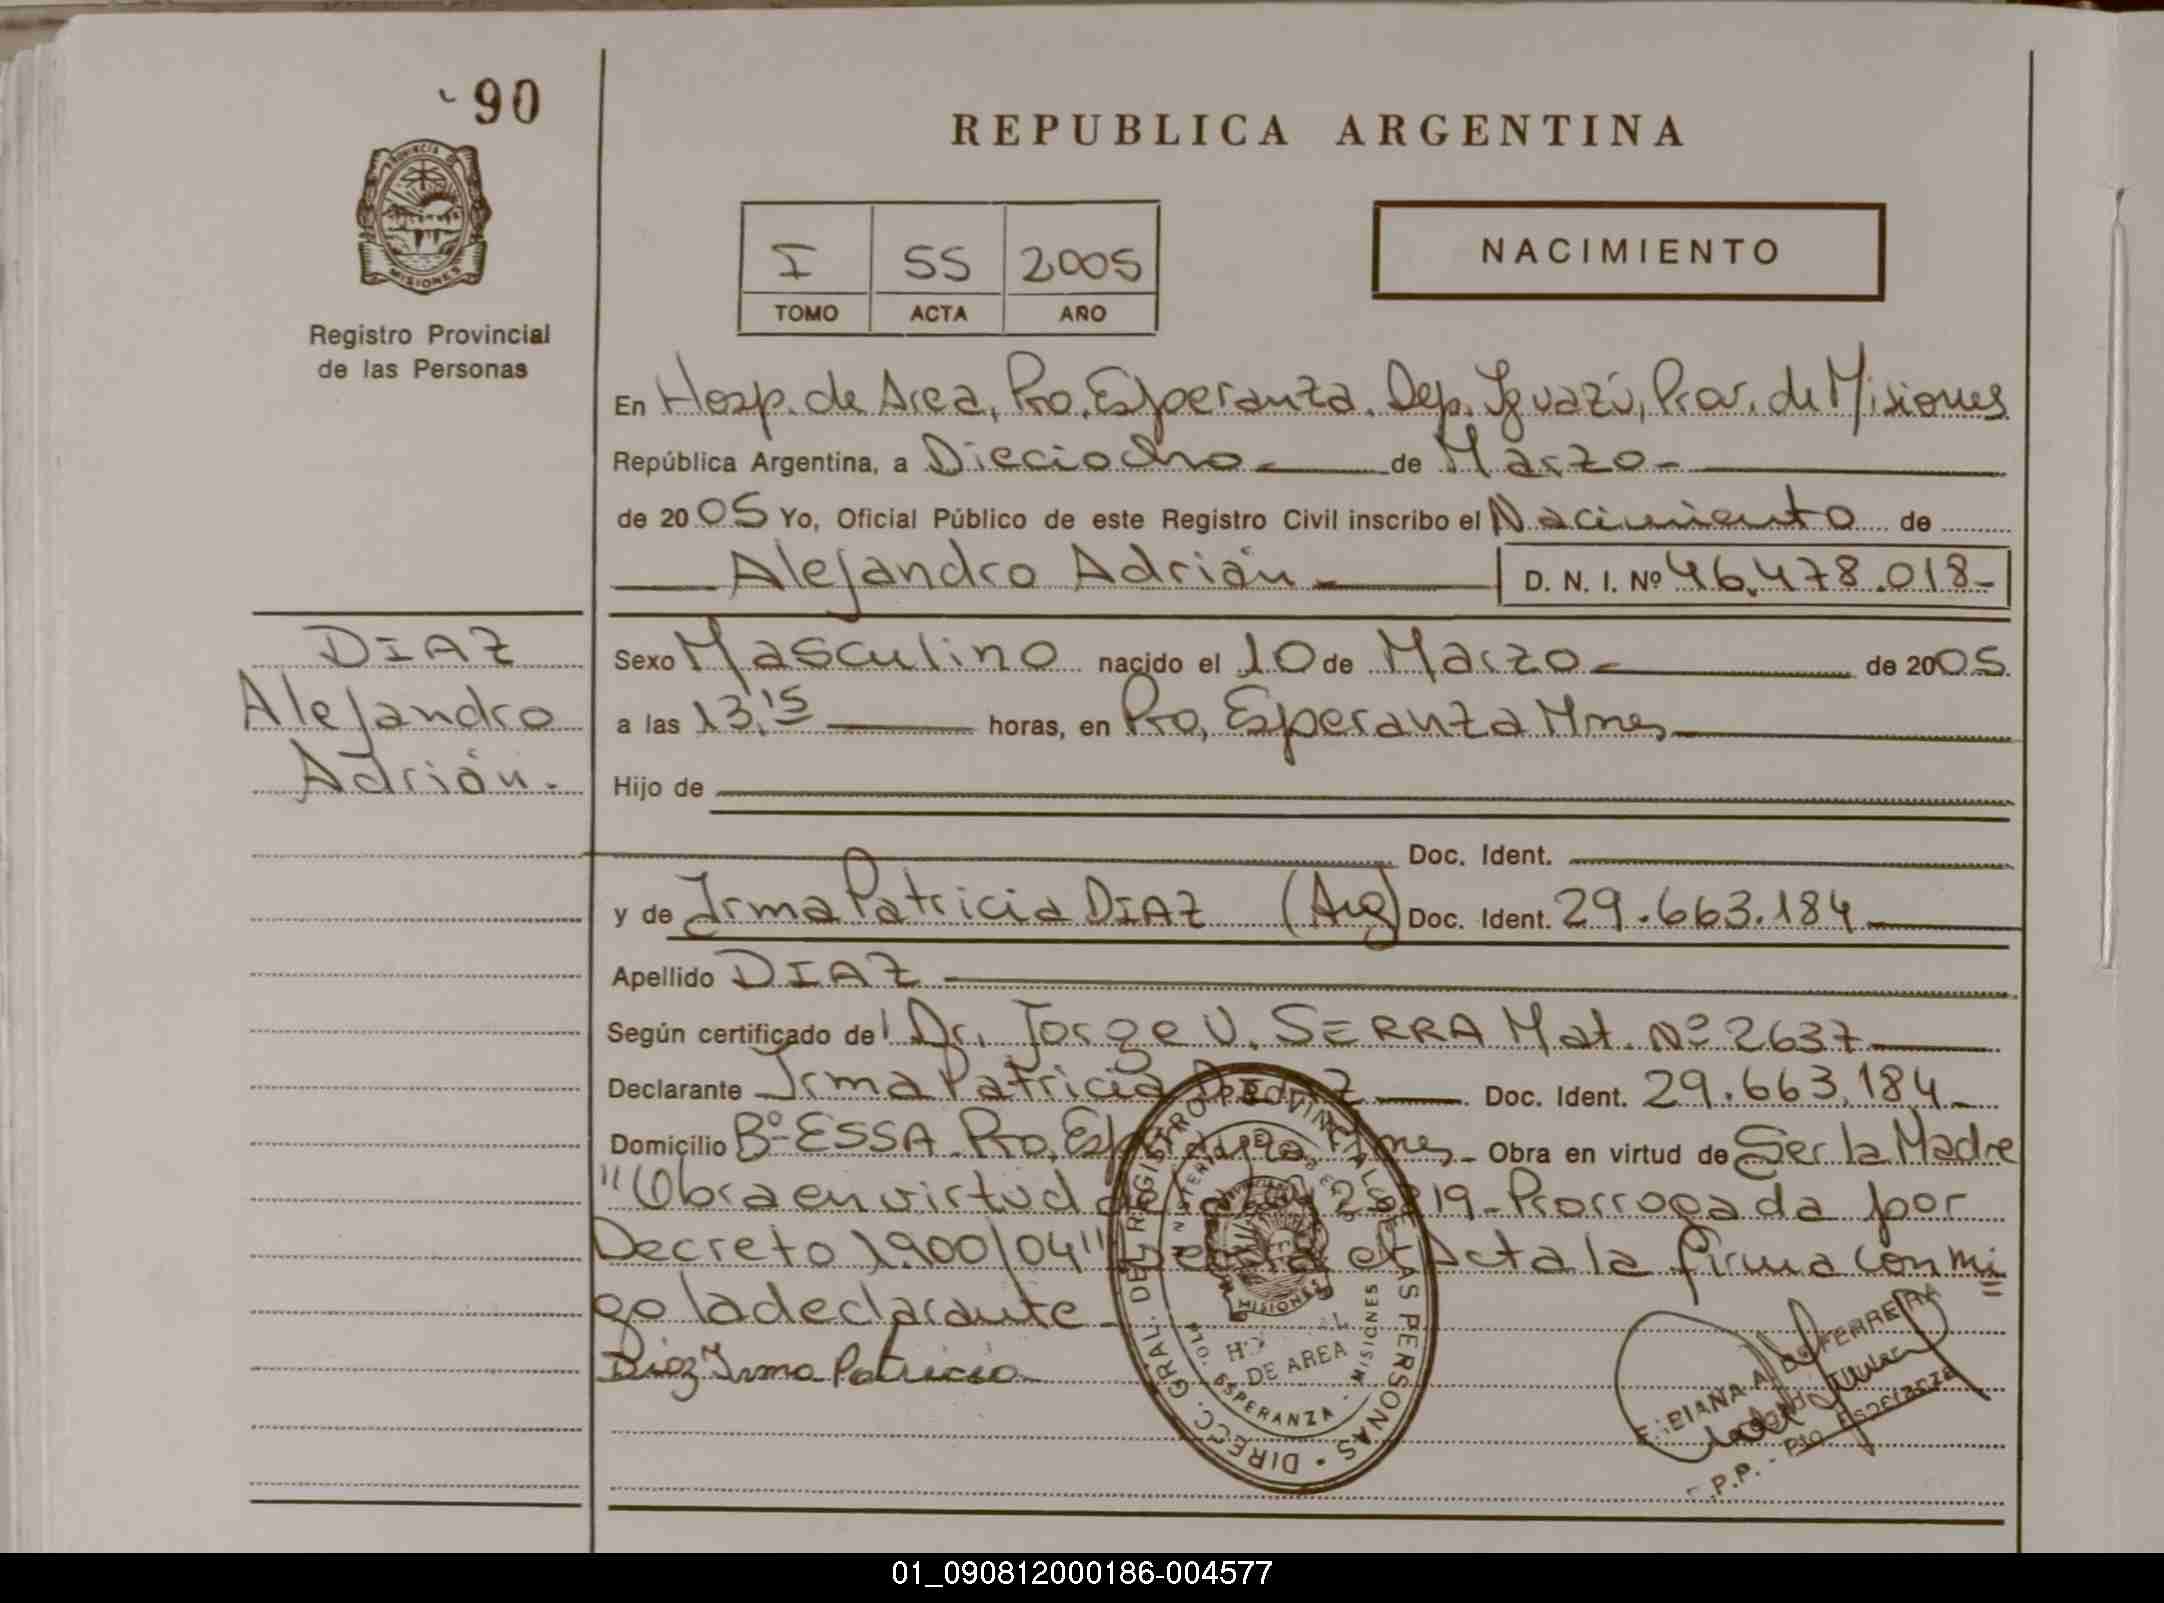 90
REPUBLICA ARGENTINA
PROVINCIA DE
MISIONES
Registro Provincial
de las Personas
I SS 2005
TOMO ACTA AÑO
NACIMIENTO
En Hosp. de Area, Pto. Esperanza, Dep. Iguazú, Prov. de Misiones
República Argentina, a Dieciocho de Marzo
de 2005 Yo, Oficial Público de este Registro Civil inscribo el Nacimiento de
Alejandro Adrián D. N. I. Nº 46.478.018-
DIAZ
Alejandro
Adrián.
Sexo Masculino nacido el 10 de Marzo de 2005
a las 13,15 horas, en Pto, Esperanza Mnes
Hijo de
Doc. Ident.
y de Irma Patricia DIAZ (Arg) Doc. Ident. 29.663.184
Apellido DIAZ
Según certificado de Dr. Jorge V. SERRA Mat. Nº 2637
Declarante Irma Patricia DIAZ Doc. Ident. 29.663.184
Domicilio Bº ESSA Pto. Esperanza Mnes Obra en virtud de Ser la Madre
"Obra en virtud 19- Prorrogada por
Decreto 1900/04" el Acta la firma conmi
go la declarante
Diaz Irma Patricia
DIRECC. GRAL. DEL REGISTRO PROVINCIAL DE LAS PERSONAS
MISIONES
DE AREA
ESPERANZA - MISIONES
BIANA A. DE FERREIRA
P.P. - Pto Esperanza
01_090812000186-004577